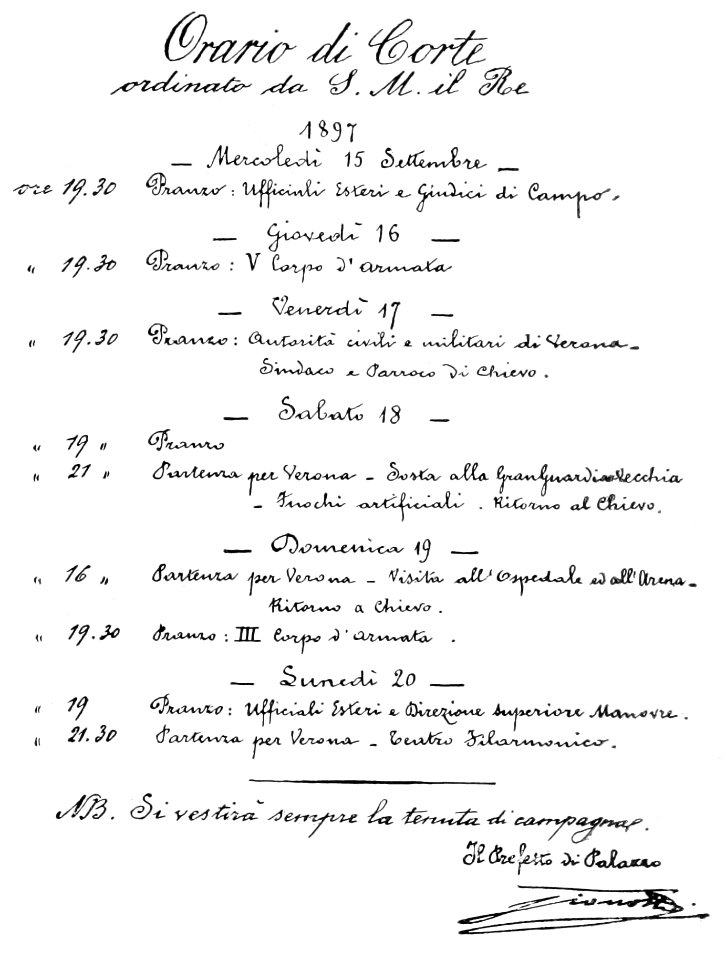 Orario di Corte
ordinato da S. M. il Re
1897
— Mercoledì 15 Settembre —
ore 19.30 Pranzo: Ufficiali Esteri e Giudici di Campo.
— Giovedì 16 —
" 19.30 Pranzo: V Corpo d'armata
— Venerdì 17 —
" 19.30 Pranzo: Autorità civili e militari di Verona —
Sindaco e Parroco di Chievo.
— Sabato 18 —
" 19 " Pranzo
" 21 " Partenza per Verona — Sosta alla Gran Guardia Vecchia
— Fuochi artificiali. Ritorno al Chievo.
— Domenica 19 —
" 16 " Partenza per Verona — Visita all'Ospedale ed all'Arena —
Ritorno a Chievo.
" 19.30 Pranzo: III Corpo d'armata.
— Lunedì 20 —
" 19 Pranzo: Ufficiali Esteri e Direzione superiore Manovre.
" 21.30 Partenza per Verona — Teatro Filarmonico.
NB. Si vestirà sempre la tenuta di campagna.
Il Prefetto di Palazzo
Gianotti